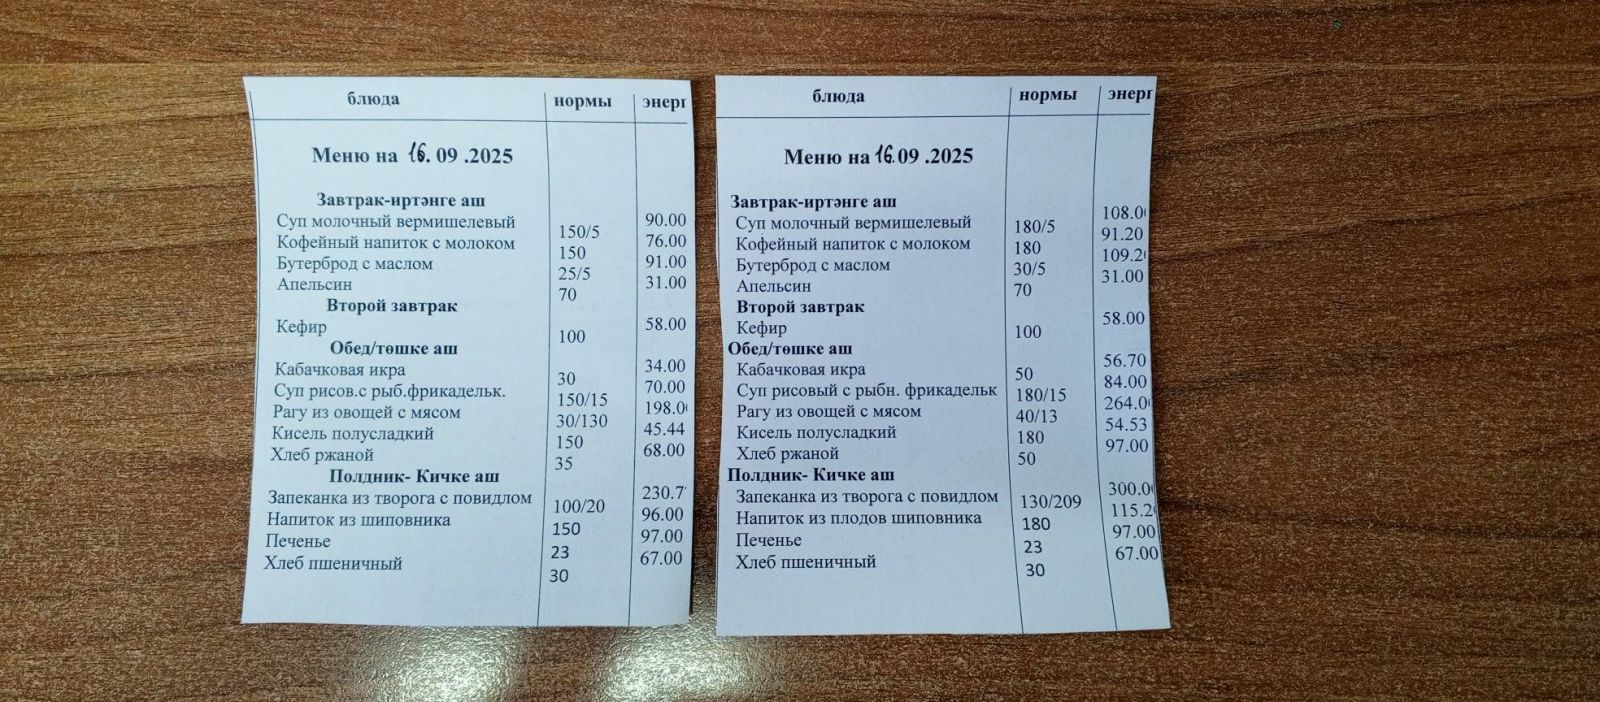 блюда нормы энерг
Меню на 16. 09 .2025
Завтрак-иртәнге аш
Суп молочный вермишелевый 150/5 90.00
Кофейный напиток с молоком 150 76.00
Бутерброд с маслом 25/5 91.00
Апельсин 70 31.00
Второй завтрак
Кефир 100 58.00
Обед/төшке аш
Кабачковая икра 30 34.00
Суп рисов.с рыб.фрикадельк. 150/15 70.00
Рагу из овощей с мясом 30/130 198.0
Кисель полусладкий 150 45.44
Хлеб ржаной 35 68.00
Полдник- Кичке аш
Запеканка из творога с повидлом 100/20 230.7
Напиток из шиповника 150 96.00
Печенье 23 97.00
Хлеб пшеничный 30 67.00
блюда нормы энерг
Меню на 16.09 .2025
Завтрак-иртәнге аш
Суп молочный вермишелевый 180/5 108.0
Кофейный напиток с молоком 180 91.20
Бутерброд с маслом 30/5 109.2
Апельсин 70 31.00
Второй завтрак
Кефир 100 58.00
Обед/төшке аш
Кабачковая икра 50 56.70
Суп рисовый с рыбн. фрикадельк 180/15 84.00
Рагу из овощей с мясом 40/13 264.0
Кисель полусладкий 180 54.53
Хлеб ржаной 50 97.00
Полдник- Кичке аш
Запеканка из творога с повидлом 130/209 300.0
Напиток из плодов шиповника 180 115.2
Печенье 23 97.00
Хлеб пшеничный 30 67.00